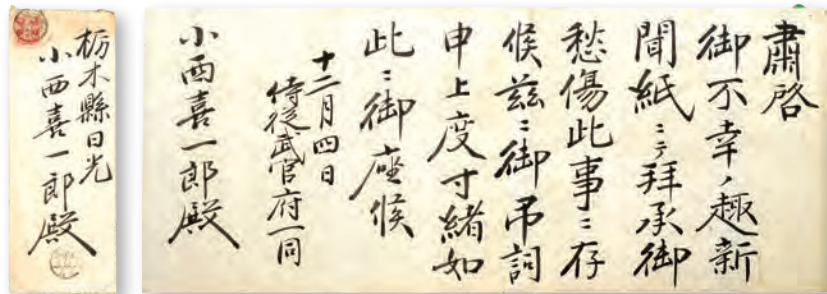 栃木縣日光
小西喜一郎殿
肅啓
御不幸ノ趣新
聞紙ニテ拝承御
愁傷此事ニ存
候茲ニ御弔詞
申上度寸緒如
此ニ御座候
十二月四日
侍従武官府一同
小西喜一郎殿